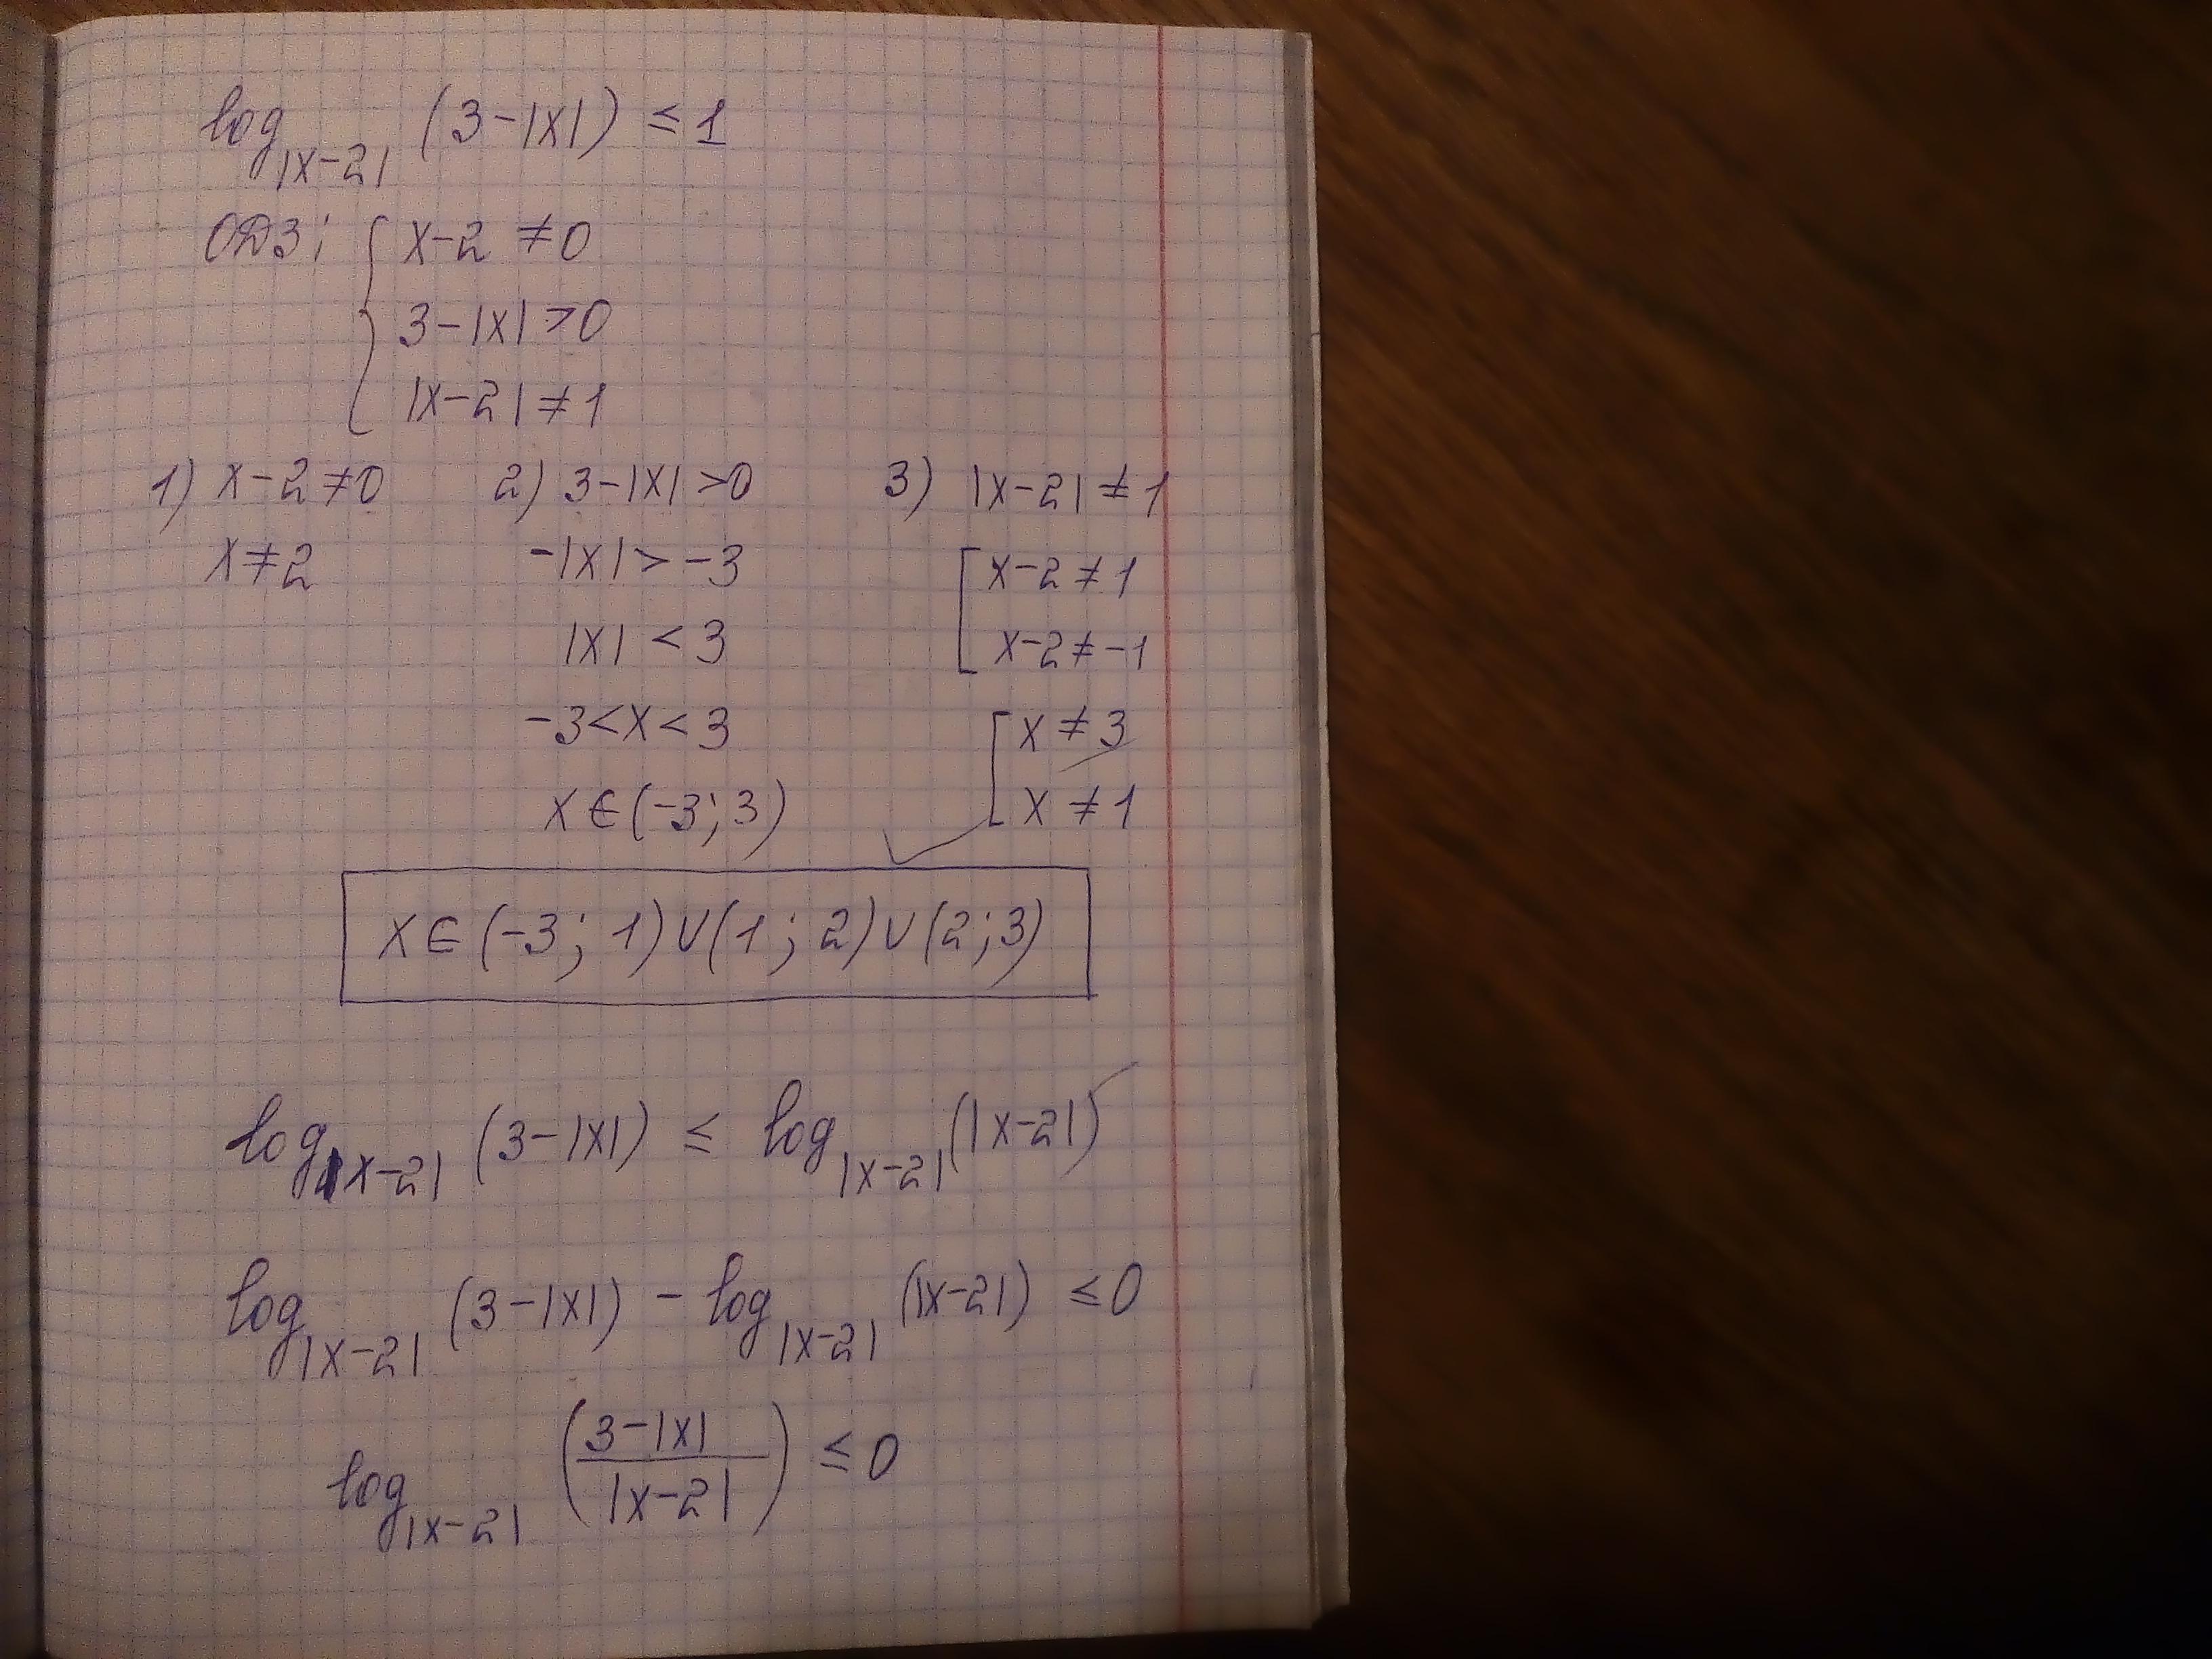 log|x-2| (3-|x|) ≤ 1
ОДЗ: { x-2 ≠ 0
3-|x| > 0
|x-2| ≠ 1
1) x-2 ≠ 0 2) 3-|x| > 0 3) |x-2| ≠ 1
x ≠ 2 -|x| > -3 [ x-2 ≠ 1
|x| < 3 x-2 ≠ -1
-3 < x < 3 [ x ≠ 3
x ∈ (-3; 3) x ≠ 1
x ∈ (-3; 1) ∪ (1; 2) ∪ (2; 3)
log|x-2| (3-|x|) ≤ log|x-2| (|x-2|)
log|x-2| (3-|x|) - log|x-2| (|x-2|) ≤ 0
log|x-2| ((3-|x|)/|x-2|) ≤ 0